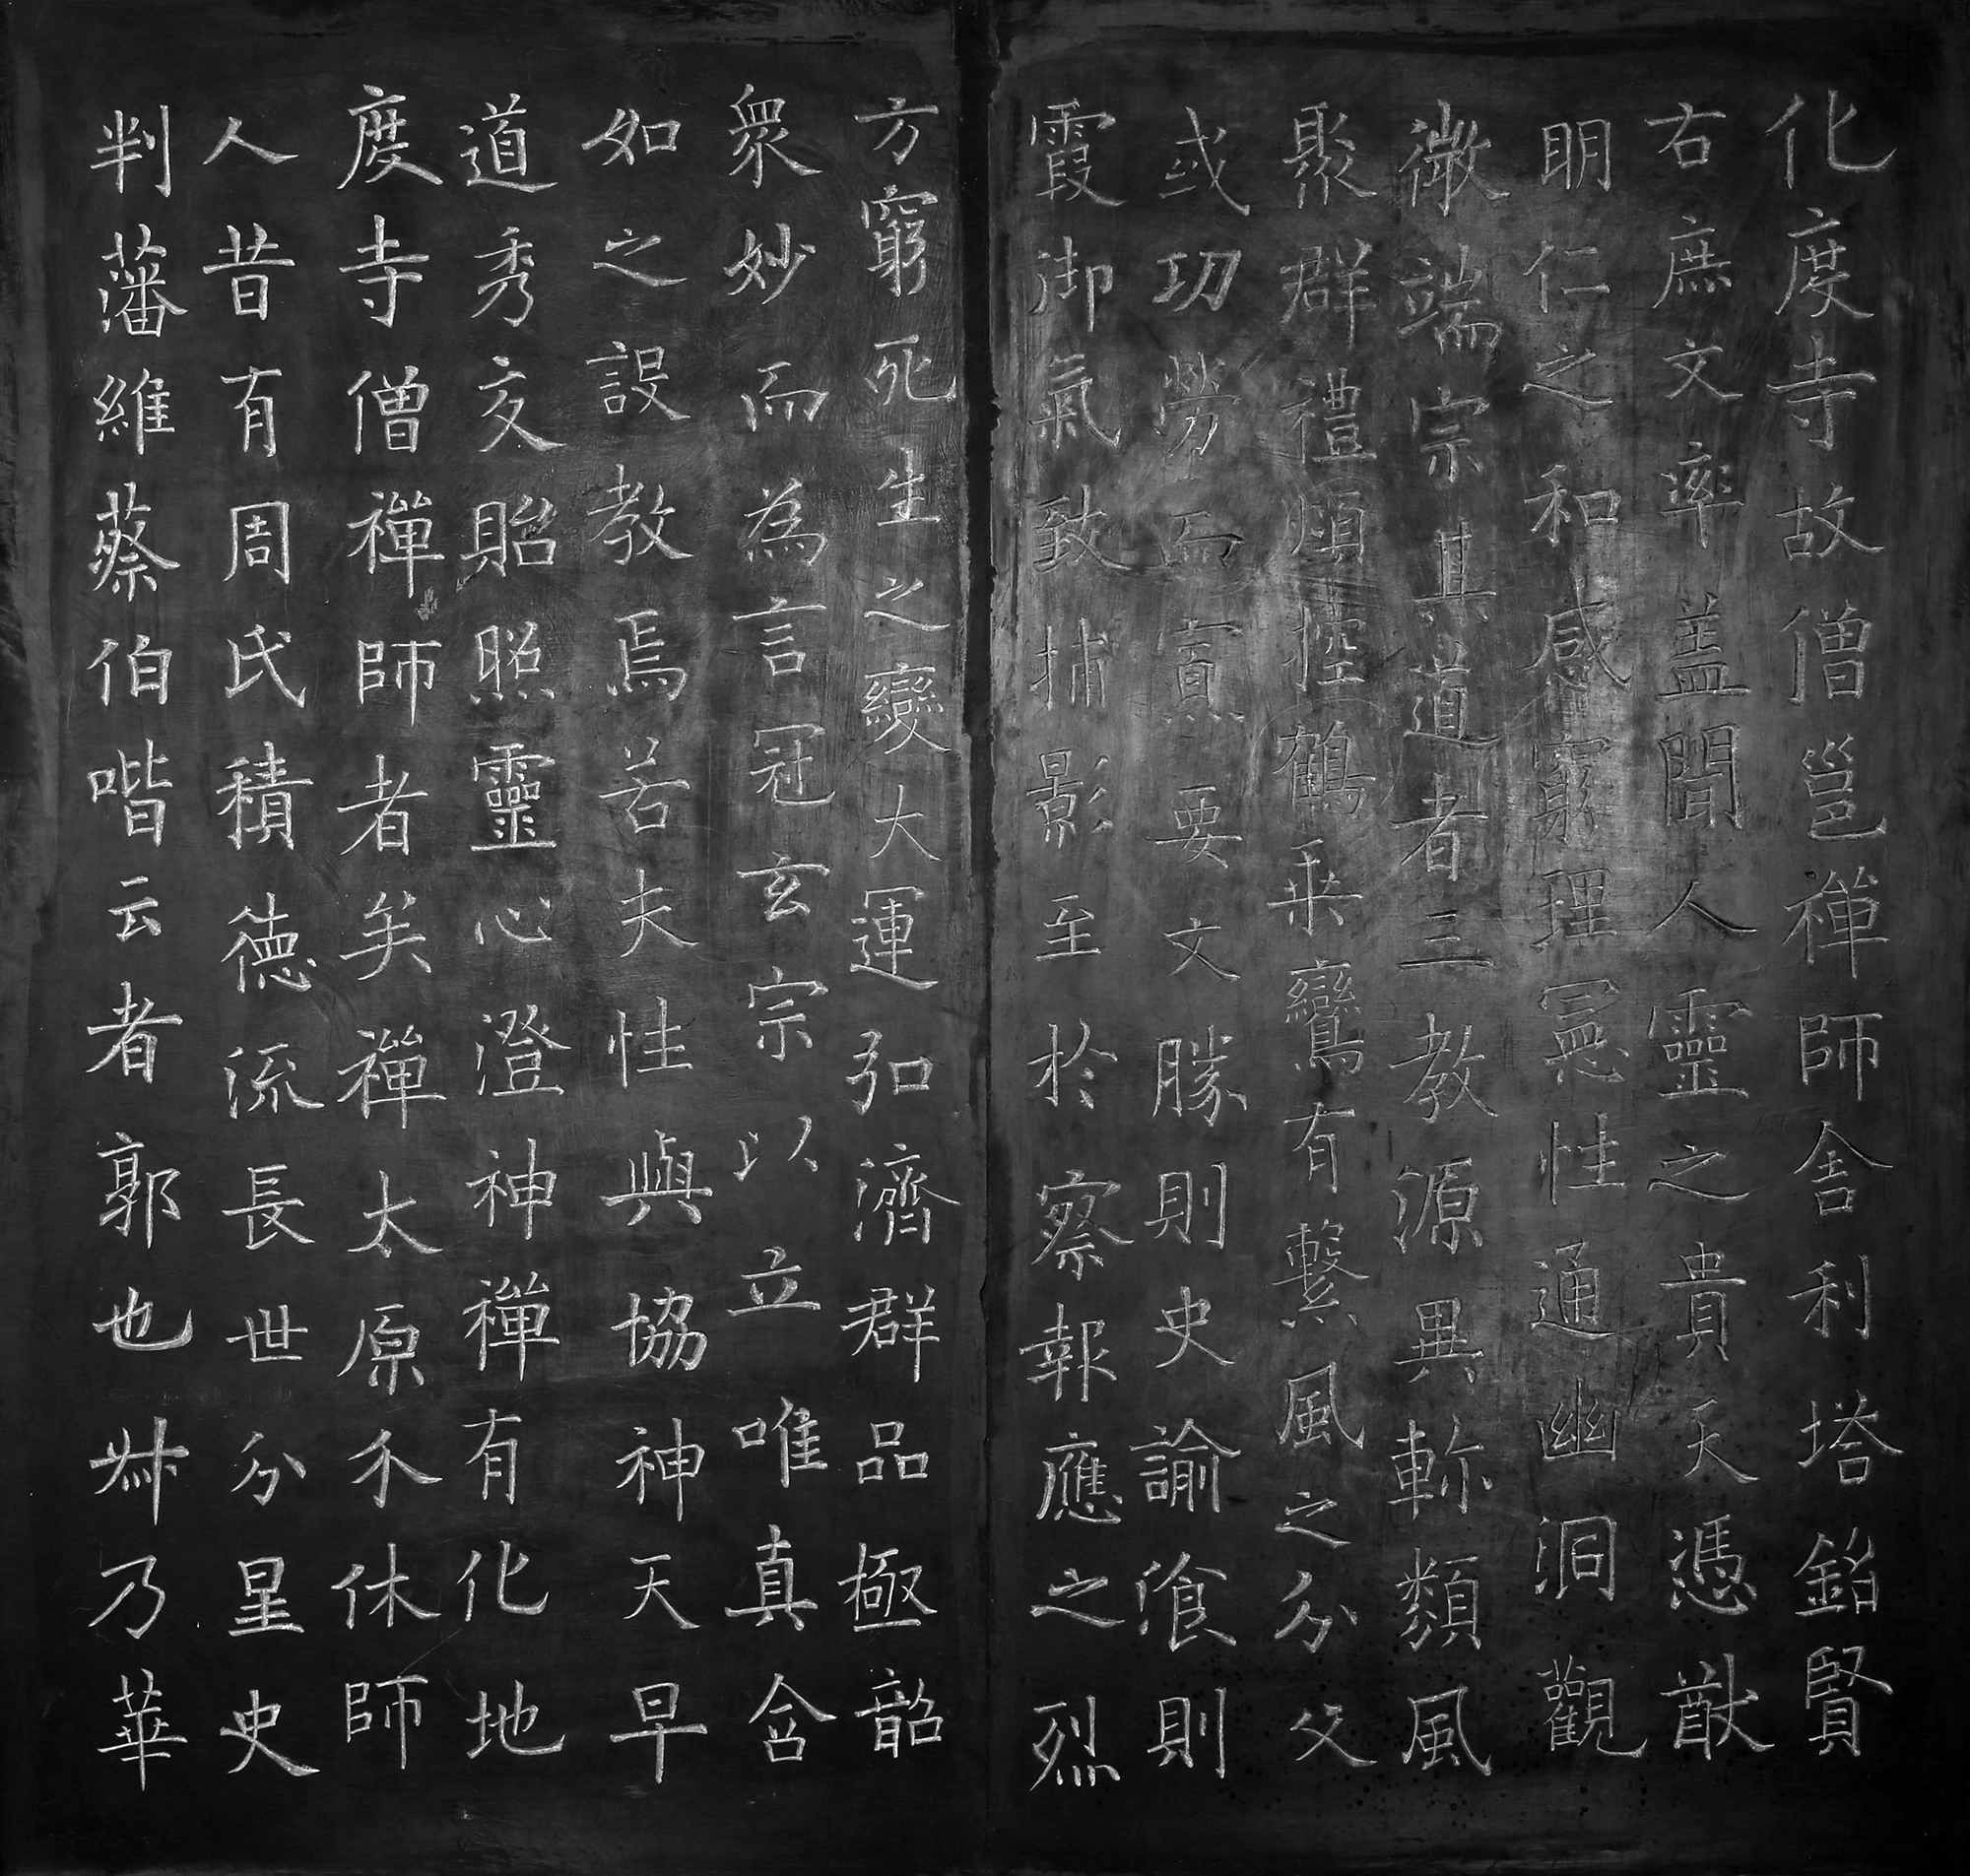 化度寺故僧邕禪師舎利塔銘賢
右庶文率盖聞人靈之貴天憑猷
明仁之和感窮理性通幽洞觀
微端宗其道者三教源異軫類風
聚群禮頤控鶴乗鸞有繫風之分父
或功勞而寘要文勝則史諭湌則
霞御氣致捕影至於察報應之烈
方窮死生之變大運弘濟群品極韶
眾妙而為言冠玄宗以立唯真含
如之設教焉若夫性與協神天早
道秀交貽照靈心澄神禪有化地
度寺僧禪師者矣禪太原介休師
人昔有周氏積德流長世分星史
判藩維蔡伯喈云者郭也乃華